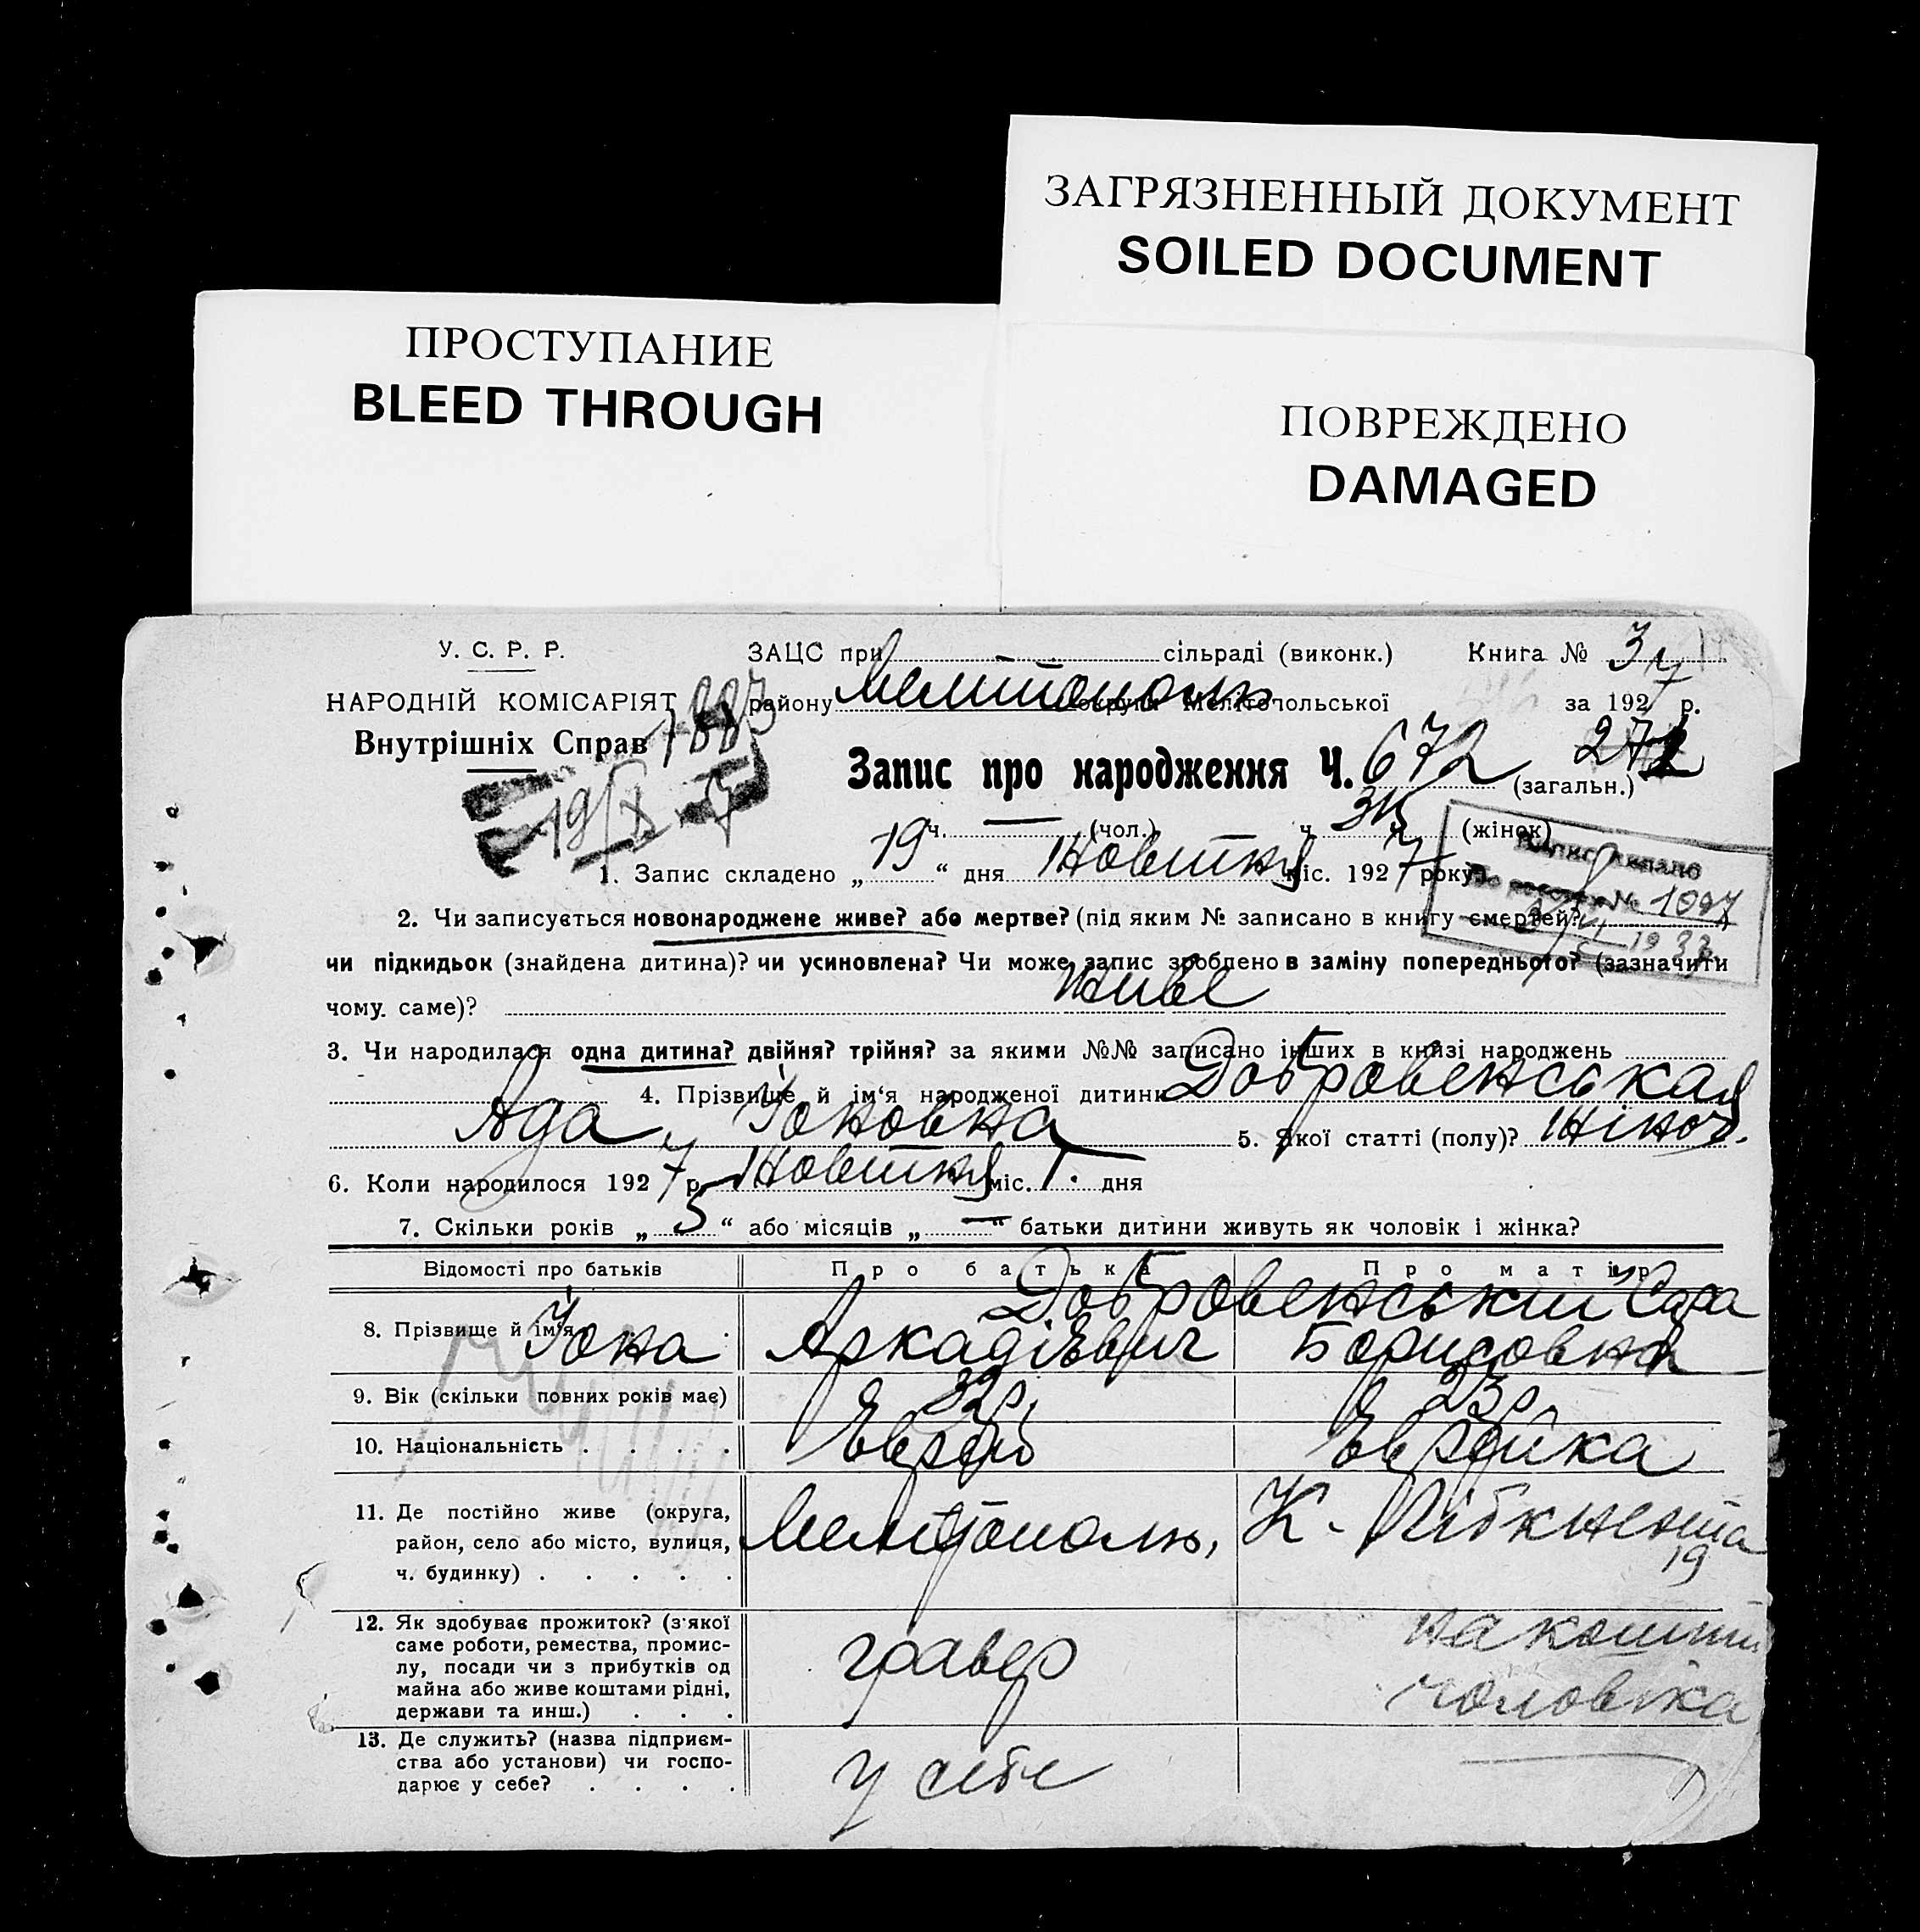 ЗАГРЯЗНЕННЫЙ ДОКУМЕНТ
SOILED DOCUMENT
ПРОСТУПАНИЕ
BLEED THROUGH
ПОВРЕЖДЕНО
DAMAGED
У. С. Р. Р.
НАРОДНІЙ КОМІСАРІЯТ
Внутрішніх Справ
ЗАЦС при сільраді (виконк.) Книга № 3
району Мелітополь округи Мелітопольської за 1927 р.
Запис про народження Ч. 672 (загальн.) 272
ч. — (чол.) ч. (жінок)
1. Запис складено „ 19 “ дня Жовтня міс. 1927 року
Запис
№ 1097
1933
2. Чи записується новонароджене живе? або мертве? (під яким № записано в книгу смертей?
чи підкидьок (знайдена дитина)? чи усиновлена? Чи може запис зроблено в заміну попереднього? (зазначити
чому саме)? живе
3. Чи народилася одна дитина? двійня? трійня? за якими №№ записано інших в книзі народжень
4. Прізвище й ім'я народженої дитини Добровенськая
Ада Іоновна 5. Якої статті (полу)? жіноч.
6. Коли народилося 1927 р. Жовтня міс. 1. дня
7. Скільки років „ 5 “ або місяців „ — “ батьки дитини живуть як чоловік і жінка?
Відомості про батьків Про батька Про матір
Добровенський Сара
8. Прізвище й ім'я Іона Аркадіевич Борисовна
9. Вік (скільки повних років має) 32 р. 23 р.
10. Національність . . . . Еврей Еврейка
11. Де постійно живе (округа,
район, село або місто, вулиця,
ч. будинку) . . . . .
Мелітополь, К. Лібкнехта
19
12. Як здобуває прожиток? (з якої
саме роботи, ремества, промис-
лу, посади чи з прибутків од
майна або живе коштами рідні,
держави та инш.) . . .
гравер
на кошти
чоловіка
13. Де служить? (назва підприєм-
ства або установи) чи госпо-
дарює у себе? . . . .
у себе